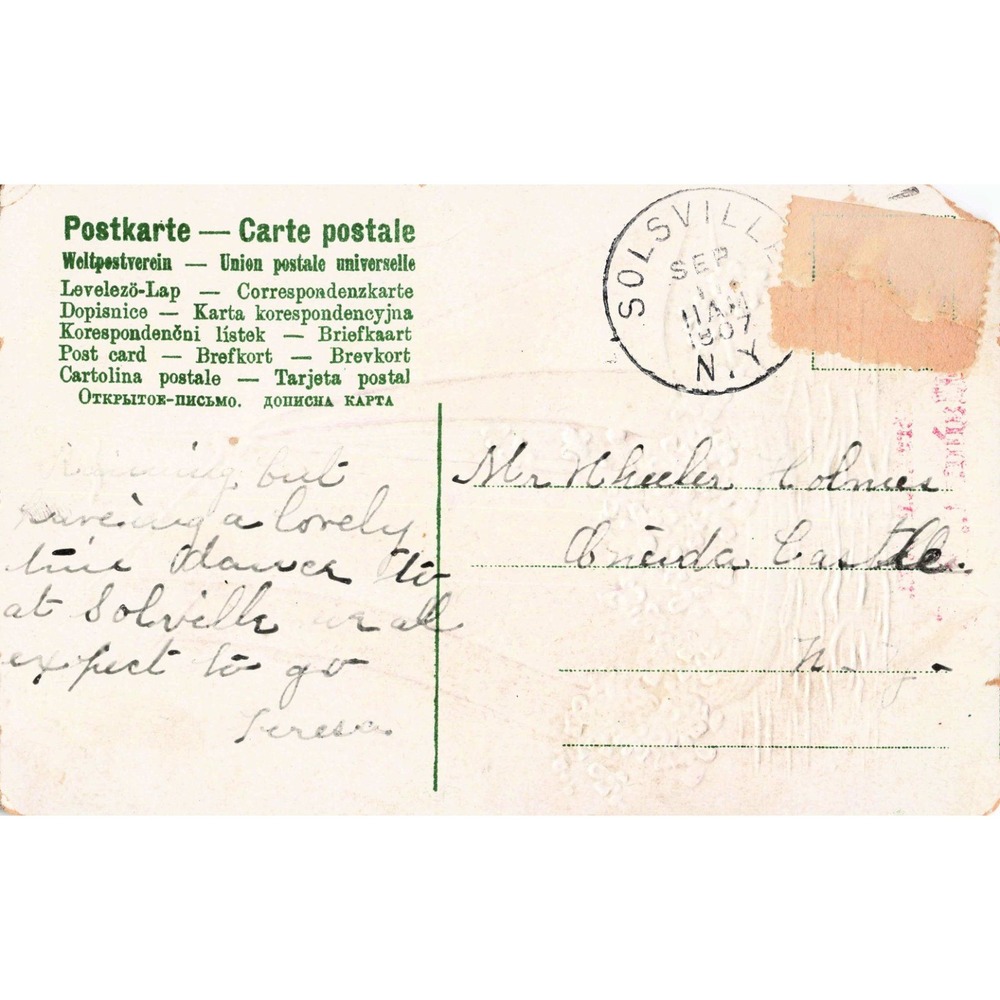 Postkarte — Carte postale
Weltpostverein — Union postale universelle
Levelező-Lap — Correspondenzkarte
Dopisnice — Karta korespondencyjna
Korespondenční lístek — Briefkaart
Post card — Brefkort — Brevkort
Cartolina postale — Tarjeta postal
Открытое-письмо. дописна карта
SOLSVILLE
SEP
11 AM
1907
N.Y.
Raining but
haveing a lovely
time Dance to
at Solville we all
expect to go
Teresa
Mr Wheeler Holmes
Oneida Castle.
N-Y-